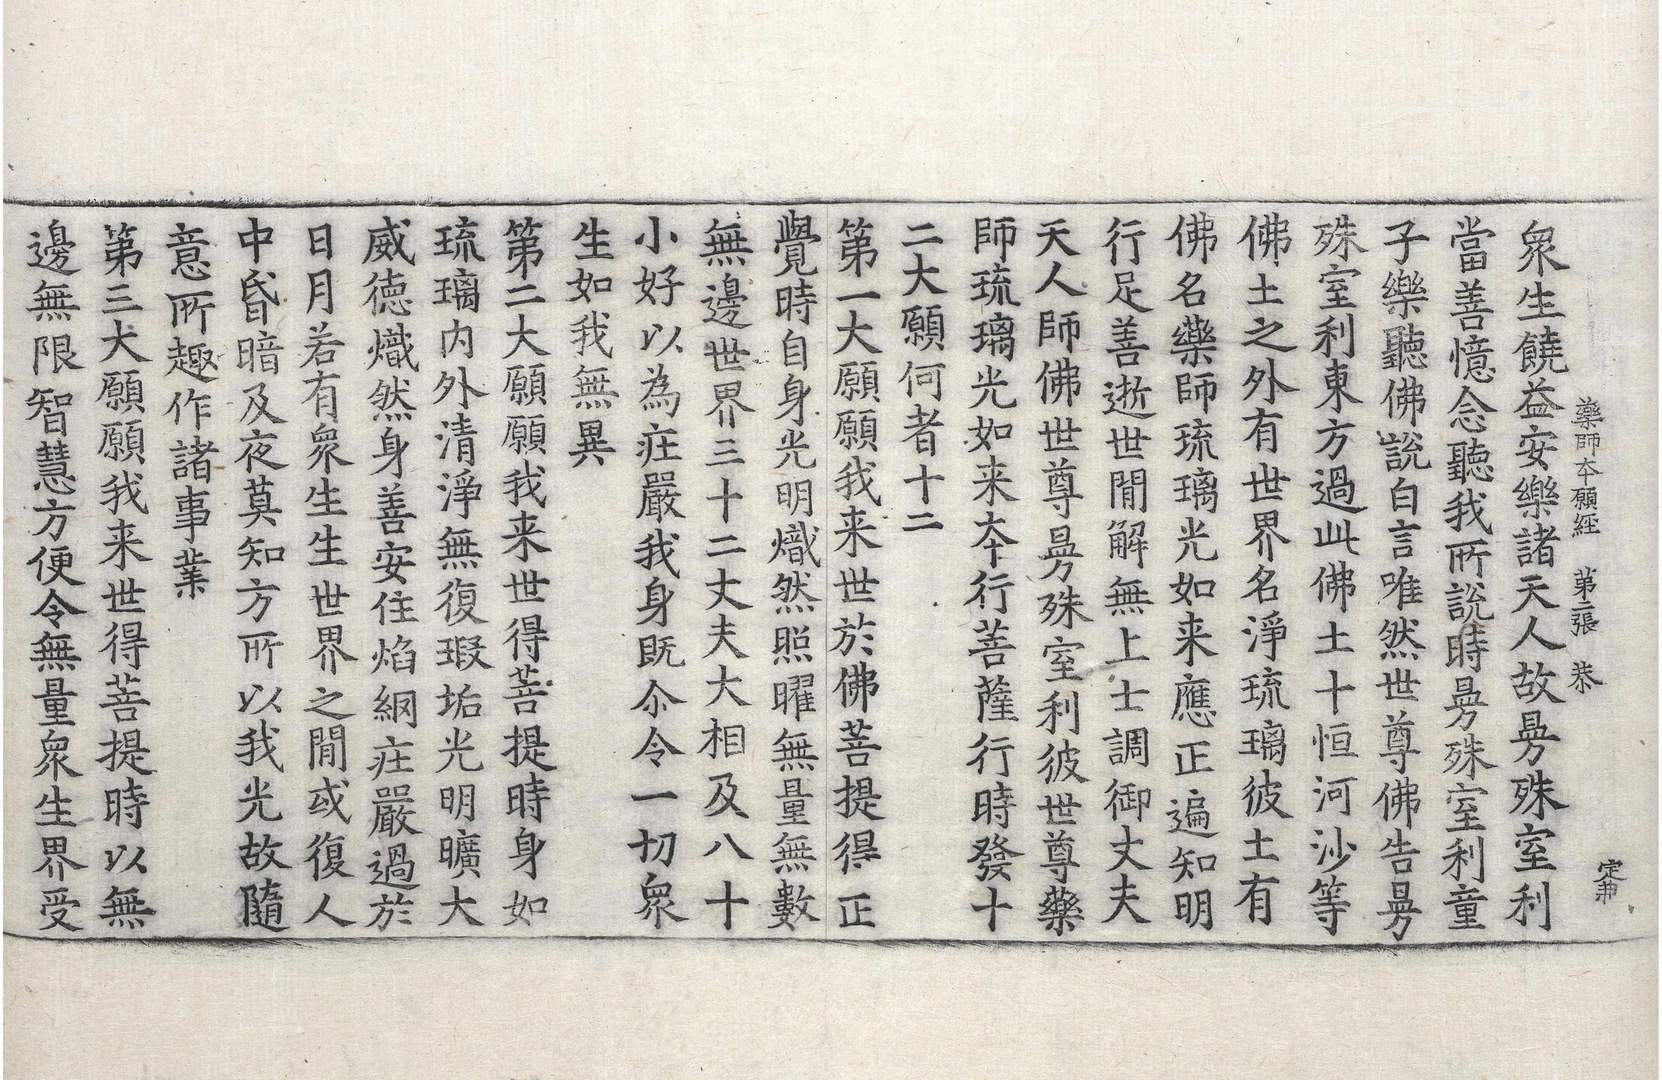 藥師本願經 第三張 恭
衆生饒益安樂諸天人故曼殊室利
當善憶念聽我所說時曼殊室利童
子樂聽佛說白言唯然世尊佛告曼
殊室利東方過此佛土十恒河沙等
佛土之外有世界名淨琉璃彼土有
佛名藥師琉璃光如来應正遍知明
行足善逝世間解無上士調御丈夫
天人師佛世尊曼殊室利彼世尊藥
師琉璃光如来夲行菩薩行時發十
二大願何者十二
第一大願願我来世於佛菩提得正
覺時自身光明熾然照曜無量無數
無邊世界三十二丈夫大相及八十
小好以為莊嚴我身既尒令一切衆
生如我無異
第二大願願我来世得菩提時身如
琉璃內外清淨無復瑕垢光明曠大
威德熾然身善安住焰網莊嚴過於
日月若有衆生生世界之間或復人
中昏暗及夜莫知方所以我光故隨
意所趣作諸事業
第三大願願我来世得菩提時以無
邊無限智慧方便令無量衆生界受